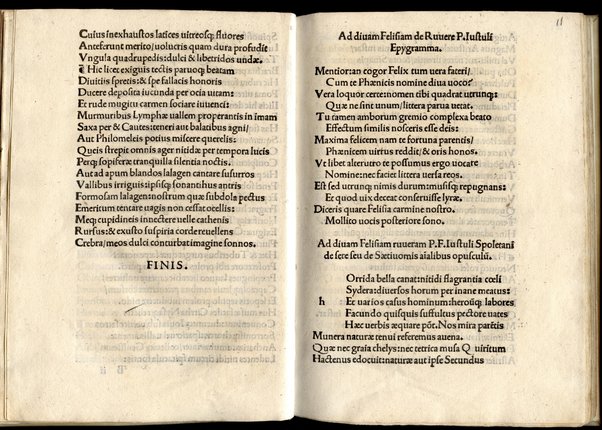 Cuius inexhaustos latices uitreosq; fluores
Anteferunt merito/uolucris quam dura profudit
Vngula quadrupedis: dulci & libethridos undæ.
Hic licet exiguis tectis paruoq; beatam
Diuitiis spretis: & spe fallacis honoris
Ducere deposita iucunda per ocia uitam:
Et rude mugitu carmen sociare iuuenci:
Murmuribus Lymphæ uallem properantis in imam
Saxa per & Cautes: teneri aut balatibus agni/
Aut Philomeleis potius miscere querelis:
Queis strepit omnis ager nitidæ per tempora lucis
Perq; sopiferæ tranquilla silentia noctis.
Aut ad apum blandos lalagen cantare susurros
Vallibus irriguis: ipsisq; sonantibus antris
Formosam lalagen: nostrum quæ subdola pectus
Emeritum tentare uagis non cessat ocellis:
Meq; cupidineis innectere uelle cathenis
Rursus: & exusto suspiria corde reuellens
Crebra/meos dulci concutbat imagine somnos.
FINIS.
11
Ad diuam Felisiam de Ruuere P. Iustuli
Epygramma.
Mentior: an cogor Felix tum uera fateri/
Cum te Phœnicis nomine diua uoco?
Vera loquor certe: nomen tibi quadrat utrunq;:
Quæ ne sint unum/littera parua uetat.
Tu tamen amborum gremio complexa beato
Effectum similis nosceris esse deis:
Maxima felicem nam te fortuna parentis/
Phœnicem uirtus reddit/& oris honos.
Vt libet alterutro te possumus ergo uocare
Nomine: nec faciet littera uersa reos.
Est sed utrunq; nimis durum: musisq; repugnans:
Et quod uix deceat conseruisse lyræ.
Diceris quare Felisia carmine nostro.
Mollito uocis posteriore sono.
Ad diuam Felisiam rueram P. F. Iustuli Spoletani
de sere seu de Sætiuomis aialibus opusculū.
Orrida bella canat: nitidi flagrantia cœli
Sydera: diuersos horum per inane meatus:
h Et uarios casus hominum: heroūq; labores
Facundo quisquis suffultus pectore uates
Hæc uerbis æquare pōt. Nos mira parētis
Munera naturæ tenui referemus auena.
Quæ nec graia chelys: nec tetrica musa Quiritum
Hactenus edocuit: naturæ aut ipse Secundus